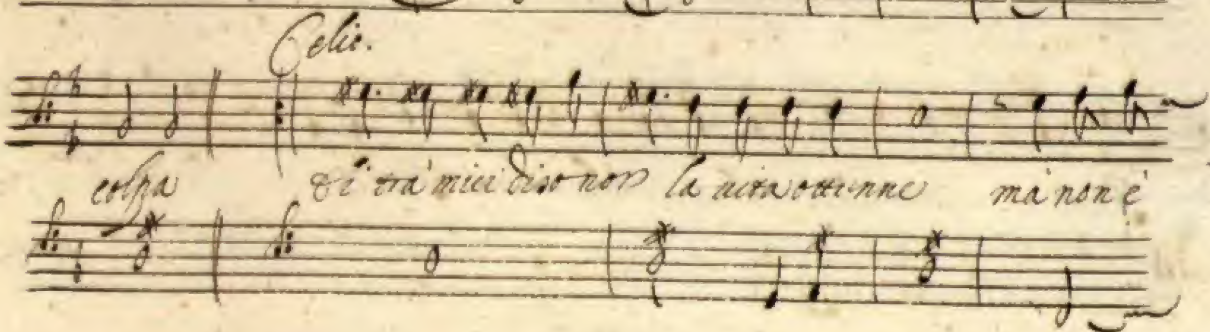 Celie.
colpa di trà miei dison non la uita ottenne mà non è